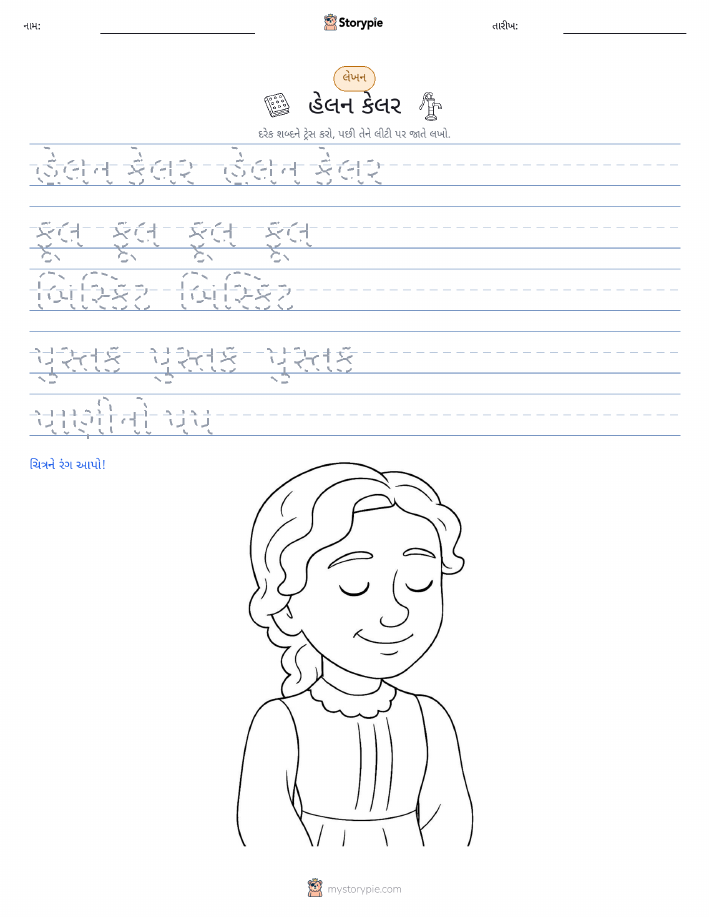 નામ: Storypie તારીખ:
લેખન
હેલન કેલર
દરેક શબ્દને ટ્રેસ કરો, પછી તેને લીટી પર જાતે લખો.
હેલન કેલર હેલન કેલર
ફૂલ ફૂલ ફૂલ ફૂલ
બિસ્કિટ બિસ્કિટ
પુસ્તક પુસ્તક પુસ્તક
પાણીનો પંપ
ચિત્રને રંગ આપો!
mystorypie.com